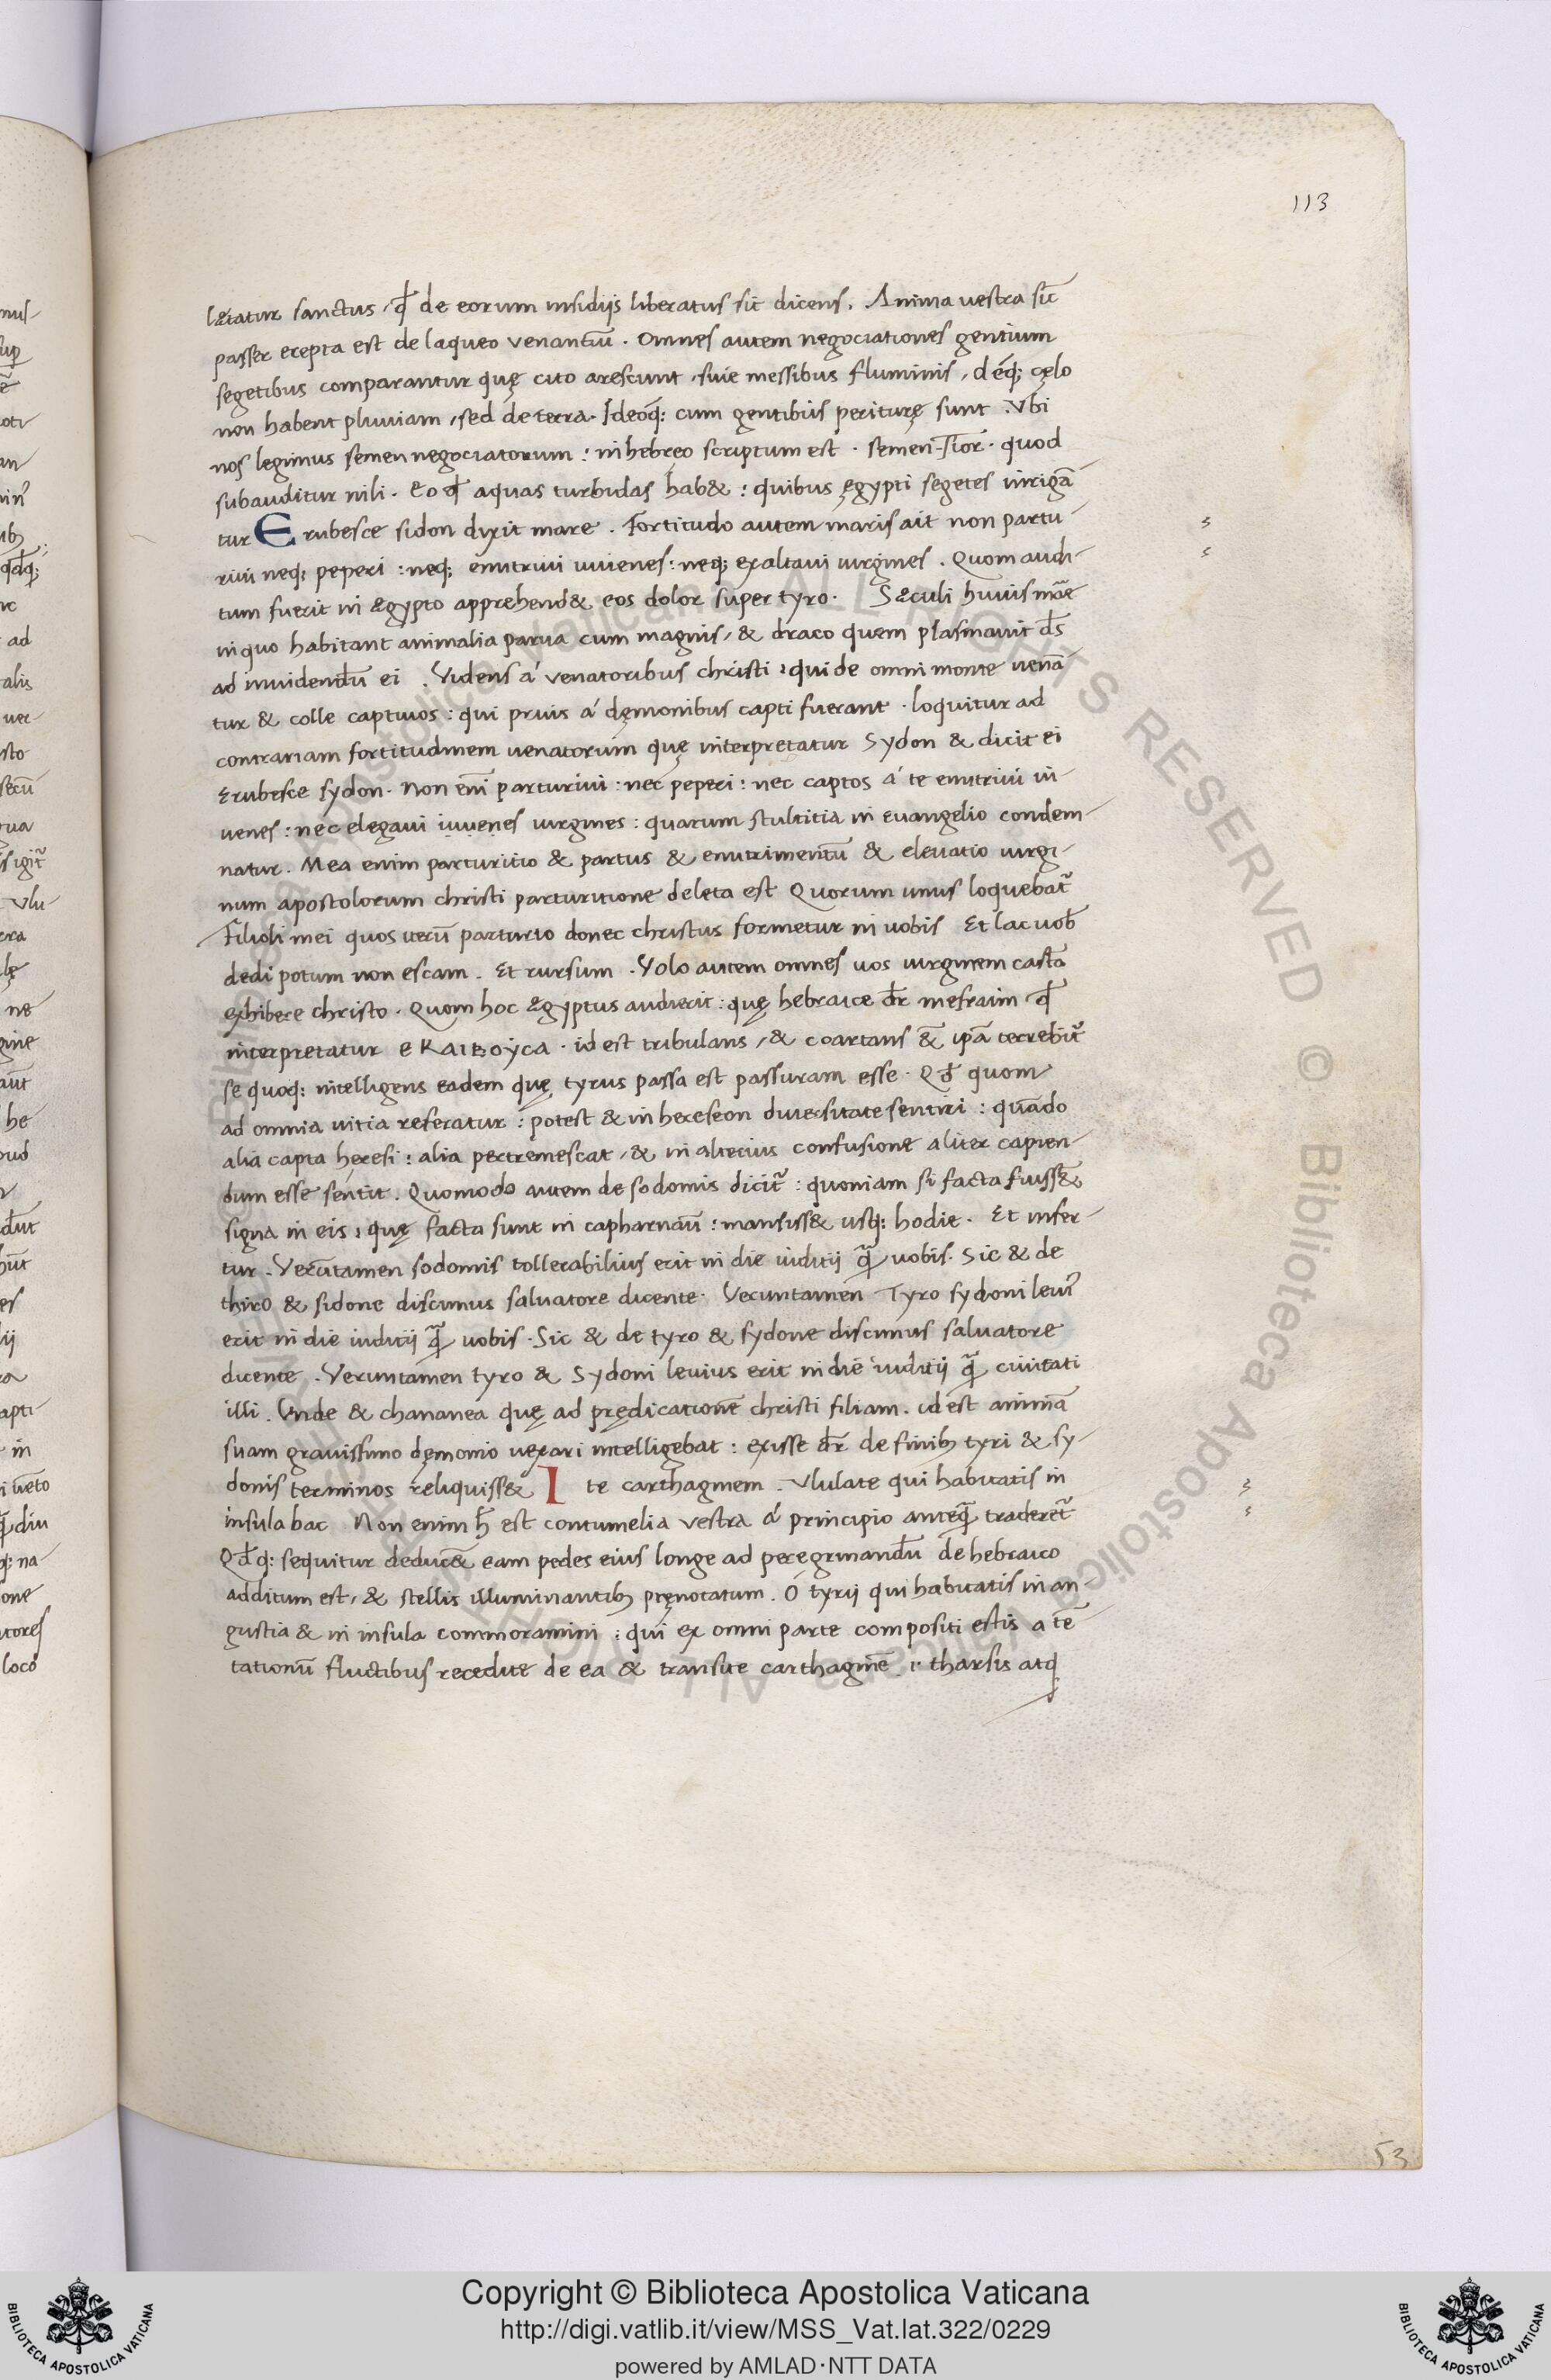 113
lætatur sanctus, qđ de eorum insidijs liberatus sit dicens. Anima uestra sic̄
passer erepta est de laqueo venantiū. Omnes autem negociationes gentium
segetibus comparantur quę cito arescunt, siue messibus fluminis, déq; cęlo
non habent pluuiam, sed de terra. Ideoq: cum gentibus periturę sunt. Vbi
nos legimus semen negociatorum: in hebręo scriptum est. semen-sior. quod
subauditur nili. Eo qđ aquas turbidas hab&: quibus ęgypti segetes inrigā
tur Erubesce sidon dixit mare. Fortitudo autem maris ait non partu-
riui neq; peperi: neq; enutriui iuuenes: neq; exaltaui uirgines. Quom audi-
tum fuerit in ægypto apprehend& eos dolor super tyro. Sæculi huius mãe
in quo habitant animalia parua cum magnis, & draco quem plasmauit d̄s
ad inuidendū ei. Videns á venatoribus christi: qui de omni monte uenā-
tur & colle captiuos: qui prius á dęmonibus capti fuerant. loquitur ad
contrariam fortitudinem uenatorum quę interpretatur Sydon & dicit ei
Erubesce sydon. Non em̄ parturiui: nec peperi: nec captos á te enutriui iu-
uenes: nec elegaui iuuenes uirgines: quarum stultitia in euangelio condem-
natur. Mea enim parturitio & partus & enutrimentū & eleuatio uirgi-
num apostolorum christi parturitione deleta est Quorum unus loquebat̄
Filioli mei quos iterū parturio donec christus formetur in uobis Et lac uob̄
dedi potum non escam. Et rursum. Volo autem omnes uos uirginem castā
exhibere christo. Quom hoc ægyptus audierit: quę hebraice dr̄ mesraim qđ
interpretatur eKΛIBOYCA. id est tribulans, & coartans &̄ ipā terrebit̄
se quoq: intelligens eadem quę tyrus passa est passuram esse. Qđ quom
ad omnia uitia referatur: potest & in hereseon diuersitate sentiri: quādo
alia capta hęresi: alia pertremescat, & in alterius confusione aliter capien-
dum esse sentit. Quomodo autem de sodomis dicit̄: quoniam si facta fuiss&
signa in eis: quę facta sunt in capharnaū: mansiss& usq: hodie. Et infer-
tur. Verūtamen sodomis tollerabilius erit in die iuditij q̄ uobis. Sic & de
thiro & sidone discimus saluatore dicente. Veruntamen Tyro sydoni leui᾽
erit in die iuditij q̄ uobis. Sic & de tyro & sydone discimus saluatore
dicente. Veruntamen tyro & Sydoni leuius erit in die iuditij q̄ ciuitati
illi. Unde & chananea quę ad prędicationē christi filiam. id est animā
suam grauissimo dęmonio uexari intelligebat: exisse dr̄ de finib; tyri & sy-
donis terminos reliquiss& Ite carthaginem. Vlulate qui habitatis in
insula hac Non enim h̄ est contumelia vestra á principio anteq̄ traderet̄
Qđq: sequitur deduc& eam pedes eius longe ad peregrinandū de hebraico
additum est, & stellis illuminantib; pręnotatum. Ó tyrij qui habitatis in an-
gustia & in insula commoramini: qui ex omni parte compositi estis a tē
tationū fluctibus recedite de ea & transite carthaginē .i. tharsis atq
53
Copyright © Biblioteca Apostolica Vaticana
http://digi.vatlib.it/view/MSS_Vat.lat.322/0229
powered by AMLAD·NTT DATA